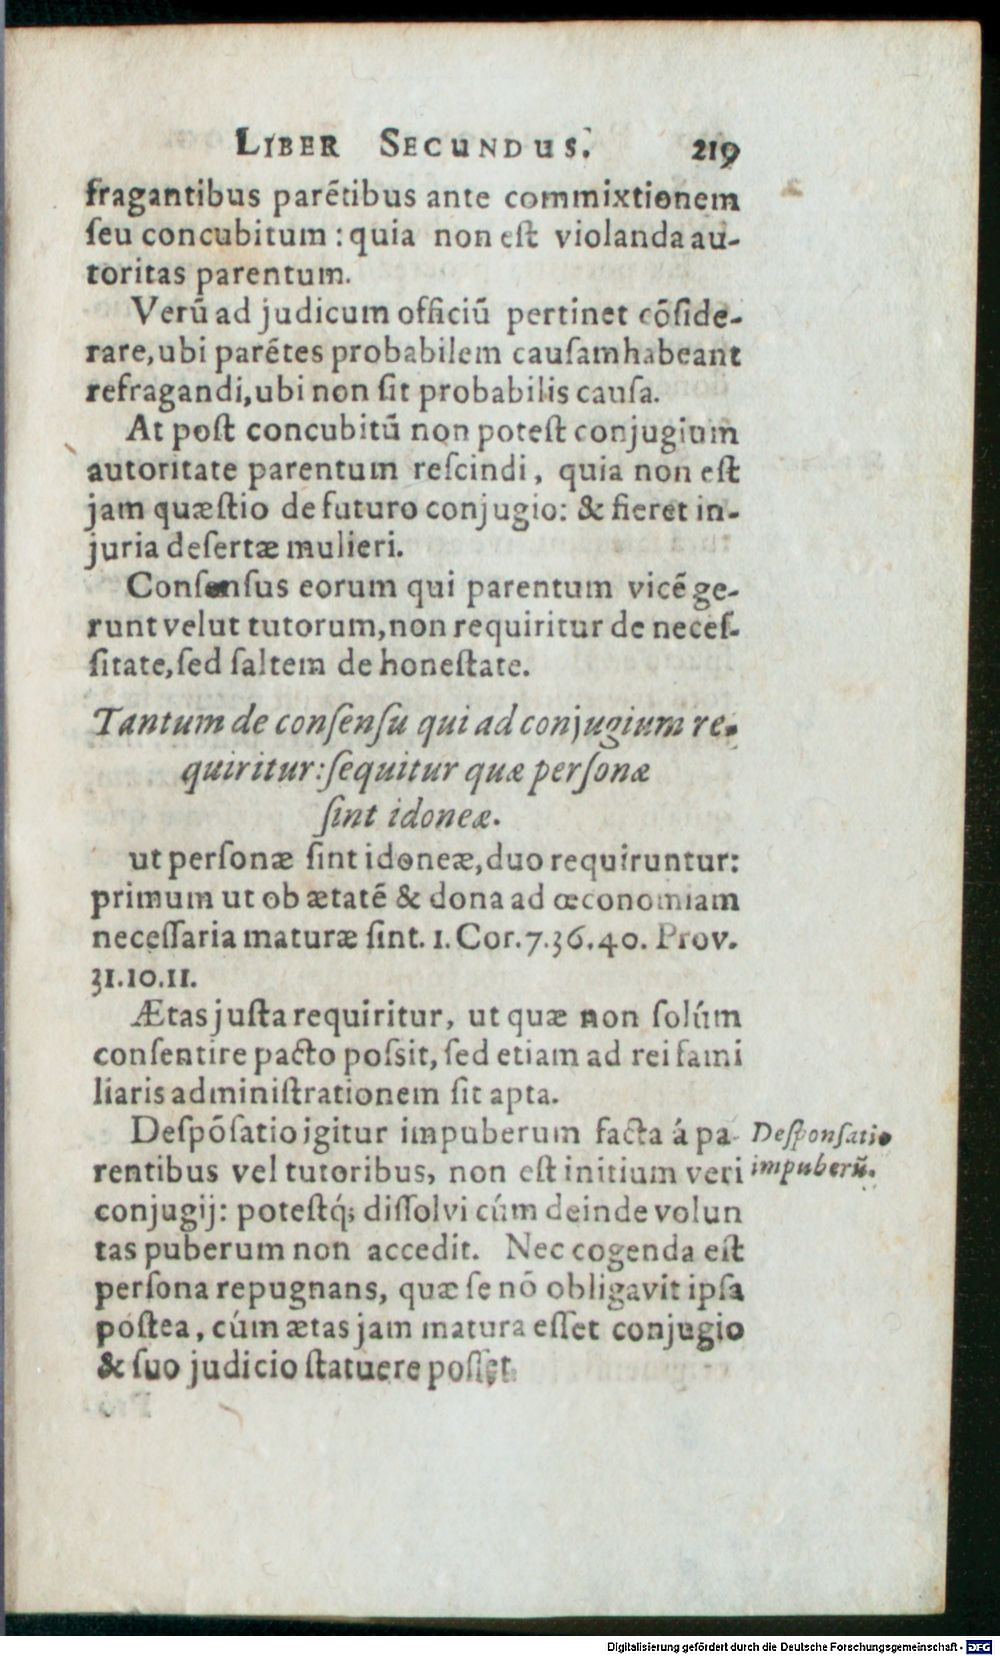 LIBER SECUNDUS. 219
fragantibus parẽtibus ante commixtionem
ſeu concubitum : quia non eſt violanda au-
toritas parentum.
Verũ ad judicum officiũ pertinet cõſide-
rare, ubi parẽtes probabilem cauſam habeant
refragandi, ubi non ſit probabilis cauſa.
At poſt concubitũ non poteſt conjugium
autoritate parentum reſcindi, quia non eſt
jam quæſtio de futuro conjugio: & fieret in-
juria deſertæ mulieri.
Conſenſus eorum qui parentum vicẽ ge-
runt velut tutorum, non requiritur de neceſ-
ſitate, ſed ſaltem de honeſtate.
Tantum de conſenſu qui ad conjugium re-
quiritur: ſequitur quæ perſonæ
ſint idoneæ.
ut perſonæ ſint idoneæ, duo requiruntur:
primum ut ob ætatẽ & dona ad œconomiam
neceſſaria maturæ ſint. 1. Cor. 7. 36. 40. Prov.
31. 10. 11.
Ætas juſta requiritur, ut quæ non ſolúm
conſentire pacto poſsit, ſed etiam ad rei fami
liaris adminiſtrationem ſit apta.
Deſpõſatio igitur impuberum facta á pa-
rentibus vel tutoribus, non eſt initium veri
conjugij: poteſtq́; diſſolvi cúm deinde volun
tas puberum non accedit. Nec cogenda eſt
perſona repugnans, quæ ſe nõ obligavit ipſa
poſtea, cúm ætas jam matura eſſet conjugio
& ſuo judicio ſtatuere poſſet.
Deſponſatio
impuberũ.
Digitalisierung gefördert durch die Deutsche Forschungsgemeinschaft - DFG